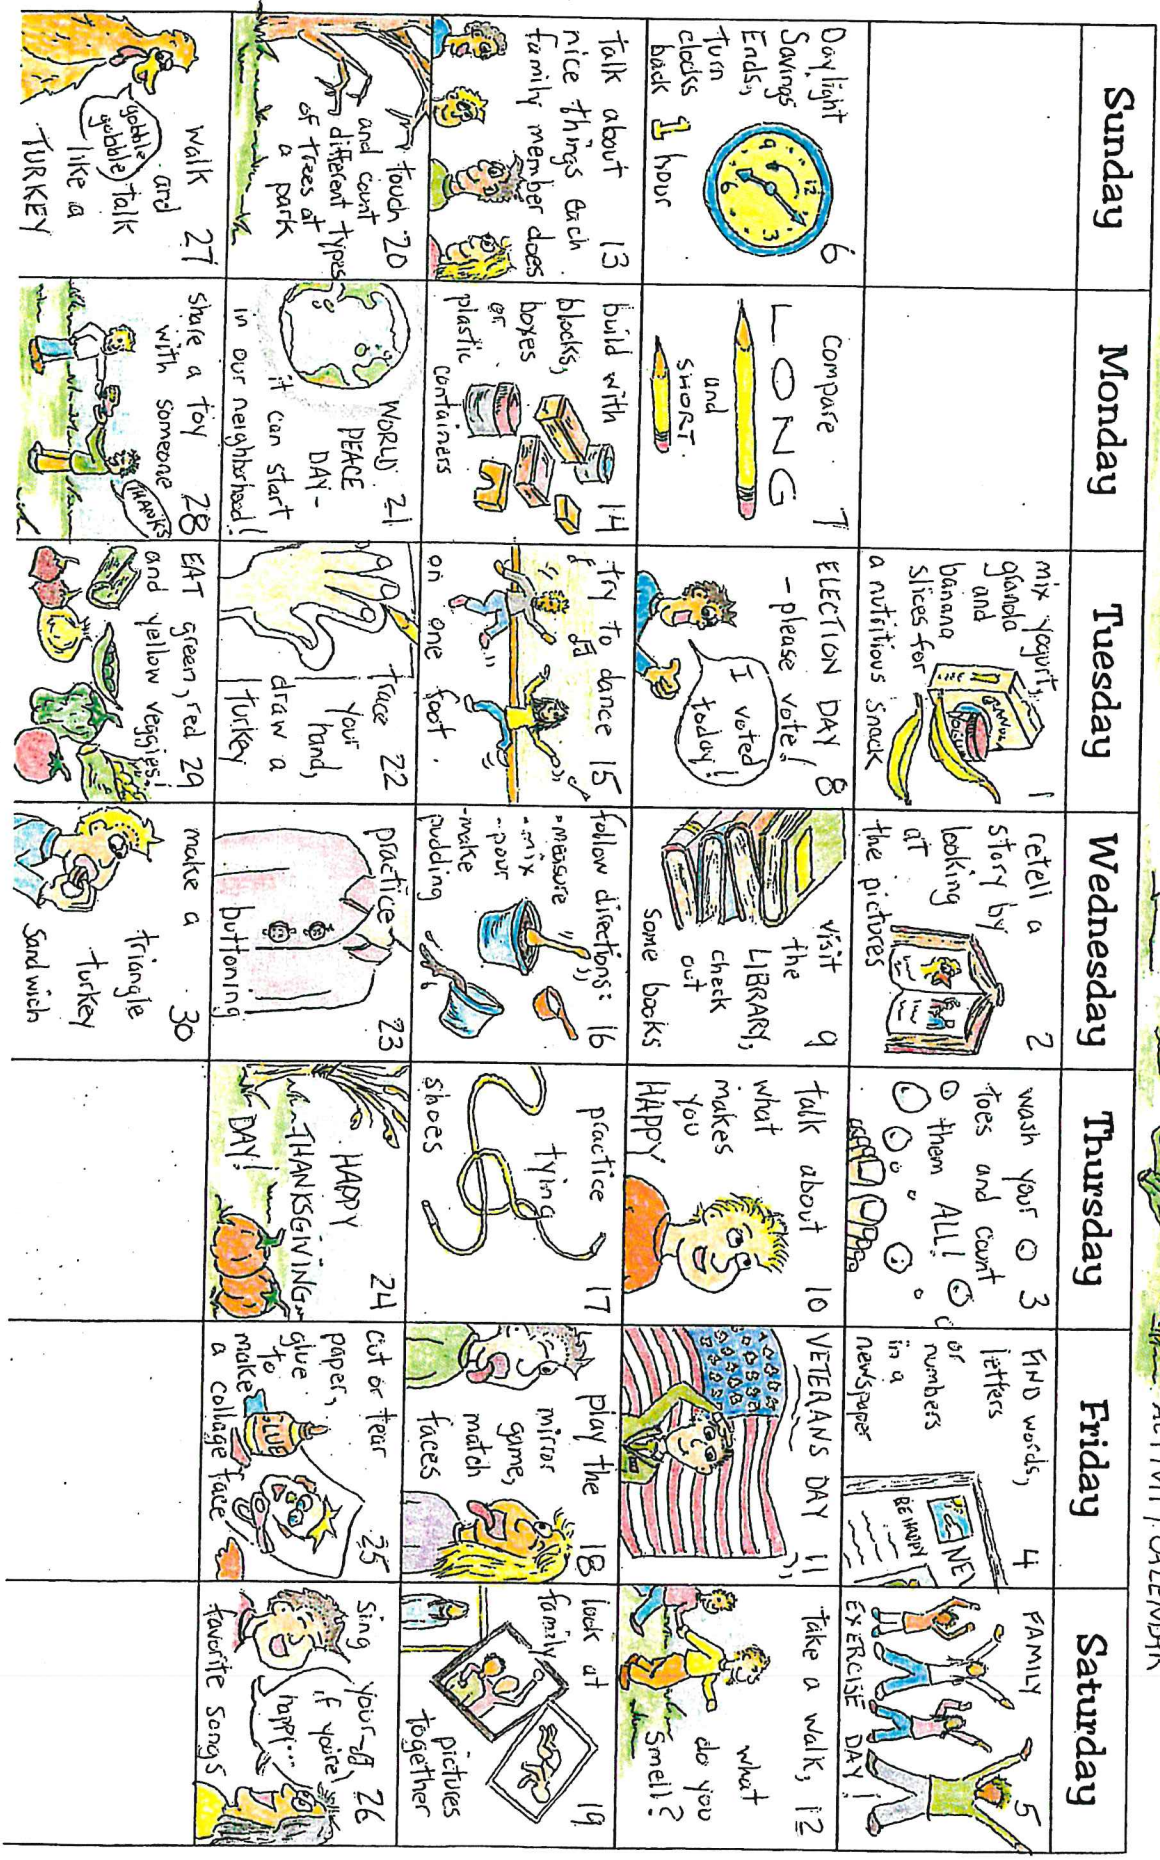 ACTIVITY CALENDAR
Sunday
Monday
Tuesday
Wednesday
Thursday
Friday
Saturday
1
mix yogurt,
granola
and
banana
slices for
a nutritious snack
2
retell a
story by
looking
at
the pictures
wash your 3
toes and count
them ALL!
FIND words, 4
letters
or
numbers
in a
newspaper
NEW
BE HAPPY
FAMILY 5
EXERCISE DAY!
6
Daylight
Savings
Ends,
turn
clocks
back 1 hour
12
3
6
9
Compare 7
LONG
and
SHORT
ELECTION DAY 8
- please vote!
I
voted
today!
visit 9
the
LIBRARY,
check
out
some books
talk about 10
what
makes
you
HAPPY
VETERANS DAY 11
take a walk, 12
what
do you
smell?
talk about 13
nice things each
family member does
build with 14
blocks,
boxes
or
plastic
containers
try to dance 15
on one foot.
follow directions: 16
-measure
-mix
-pour
-make
pudding
practice 17
tying
shoes
play the 18
mirror
game,
match
faces
look at 19
family
pictures
together
touch 20
and count
different types
of trees at
a park
WORLD 21
PEACE
DAY-
it can start
in our neighborhood!
trace 22
your
hand,
draw a
turkey
practice 23
buttoning
24
HAPPY
THANKSGIVING
DAY!
cut or tear 25
paper,
glue
to
make
a collage face
GLUE
sing your 26
if you're
happy...
favorite songs
walk 27
and
gobble
gobble
talk
like a
TURKEY
share a toy 28
with someone
THANKS
EAT green, red 29
and yellow veggies!
make a 30
triangle
turkey
sandwich